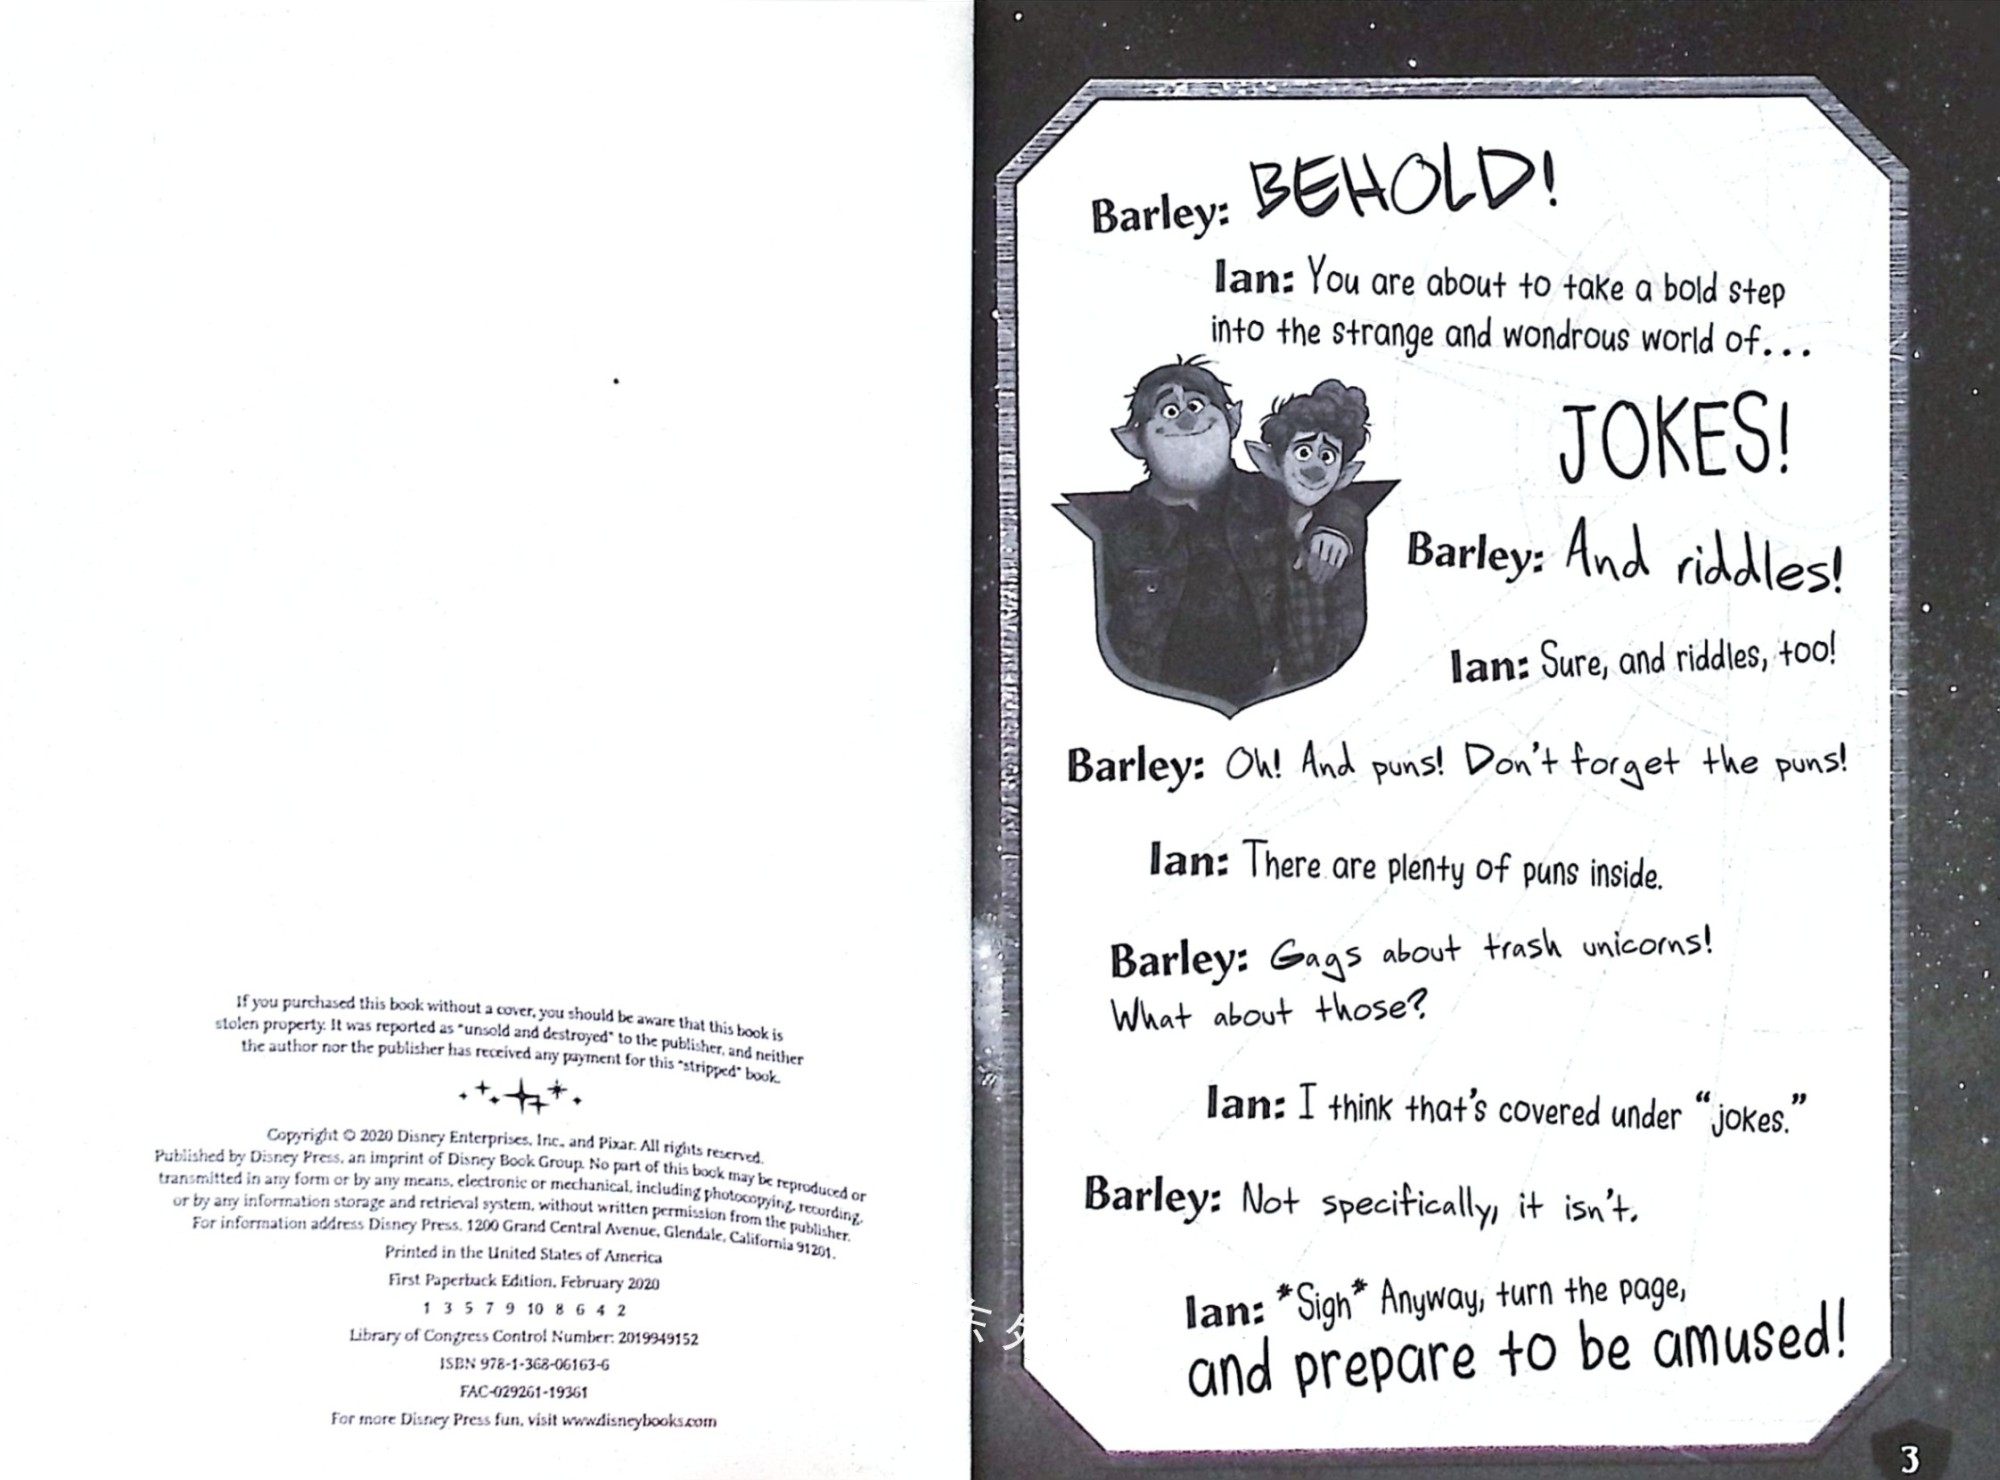 If you purchased this book without a cover, you should be aware that this book is
stolen property. It was reported as "unsold and destroyed" to the publisher, and neither
the author nor the publisher has received any payment for this "stripped" book.
Copyright © 2020 Disney Enterprises, Inc., and Pixar. All rights reserved.
Published by Disney Press, an imprint of Disney Book Group. No part of this book may be reproduced or
transmitted in any form or by any means, electronic or mechanical, including photocopying, recording,
or by any information storage and retrieval system, without written permission from the publisher.
For information address Disney Press, 1200 Grand Central Avenue, Glendale, California 91201.
Printed in the United States of America
First Paperback Edition, February 2020
1 3 5 7 9 10 8 6 4 2
Library of Congress Control Number: 2019949152
ISBN 978-1-368-06163-6
FAC-029261-19361
For more Disney Press fun, visit www.disneybooks.com
Barley: BEHOLD!
Ian: You are about to take a bold step
into the strange and wondrous world of...
JOKES!
Barley: And riddles!
Ian: Sure, and riddles, too!
Barley: Oh! And puns! Don't forget the puns!
Ian: There are plenty of puns inside.
Barley: Gags about trash unicorns!
What about those?
Ian: I think that's covered under "jokes."
Barley: Not specifically, it isn't.
Ian: *Sigh* Anyway, turn the page,
and prepare to be amused!
3